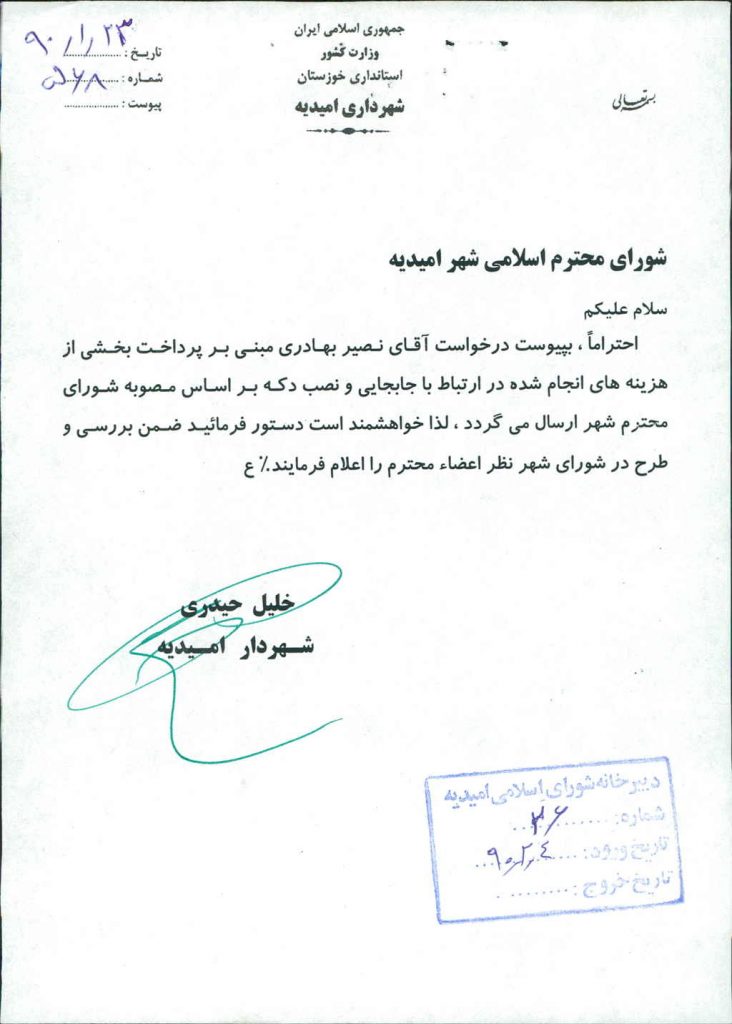 بسمه تعالی
جمهوری اسلامی ایران
وزارت کشور
استانداری خوزستان
شهرداری امیدیه
تاریخ : ۹۰/۱/۲۳
شماره :
پیوست : ....................
شورای محترم اسلامی شهر امیدیه
سلام علیکم
احتراماً ، بپیوست درخواست آقای نصیر بهادری مبنی بر پرداخت بخشی از
هزینه های انجام شده در ارتباط با جابجایی و نصب دکه بر اساس مصوبه شورای
محترم شهر ارسال می گردد ، لذا خواهشمند است دستور فرمائید ضمن بررسی و
طرح در شورای شهر نظر اعضاء محترم را اعلام فرمایند.٪ ع
خلیل حیدری
شهردار امیدیه
دبیرخانه شورای اسلامی امیدیه
شماره: ۳۶
تاریخ ورود: ۹۰٫۲٫۴
تاریخ خروج: ..........